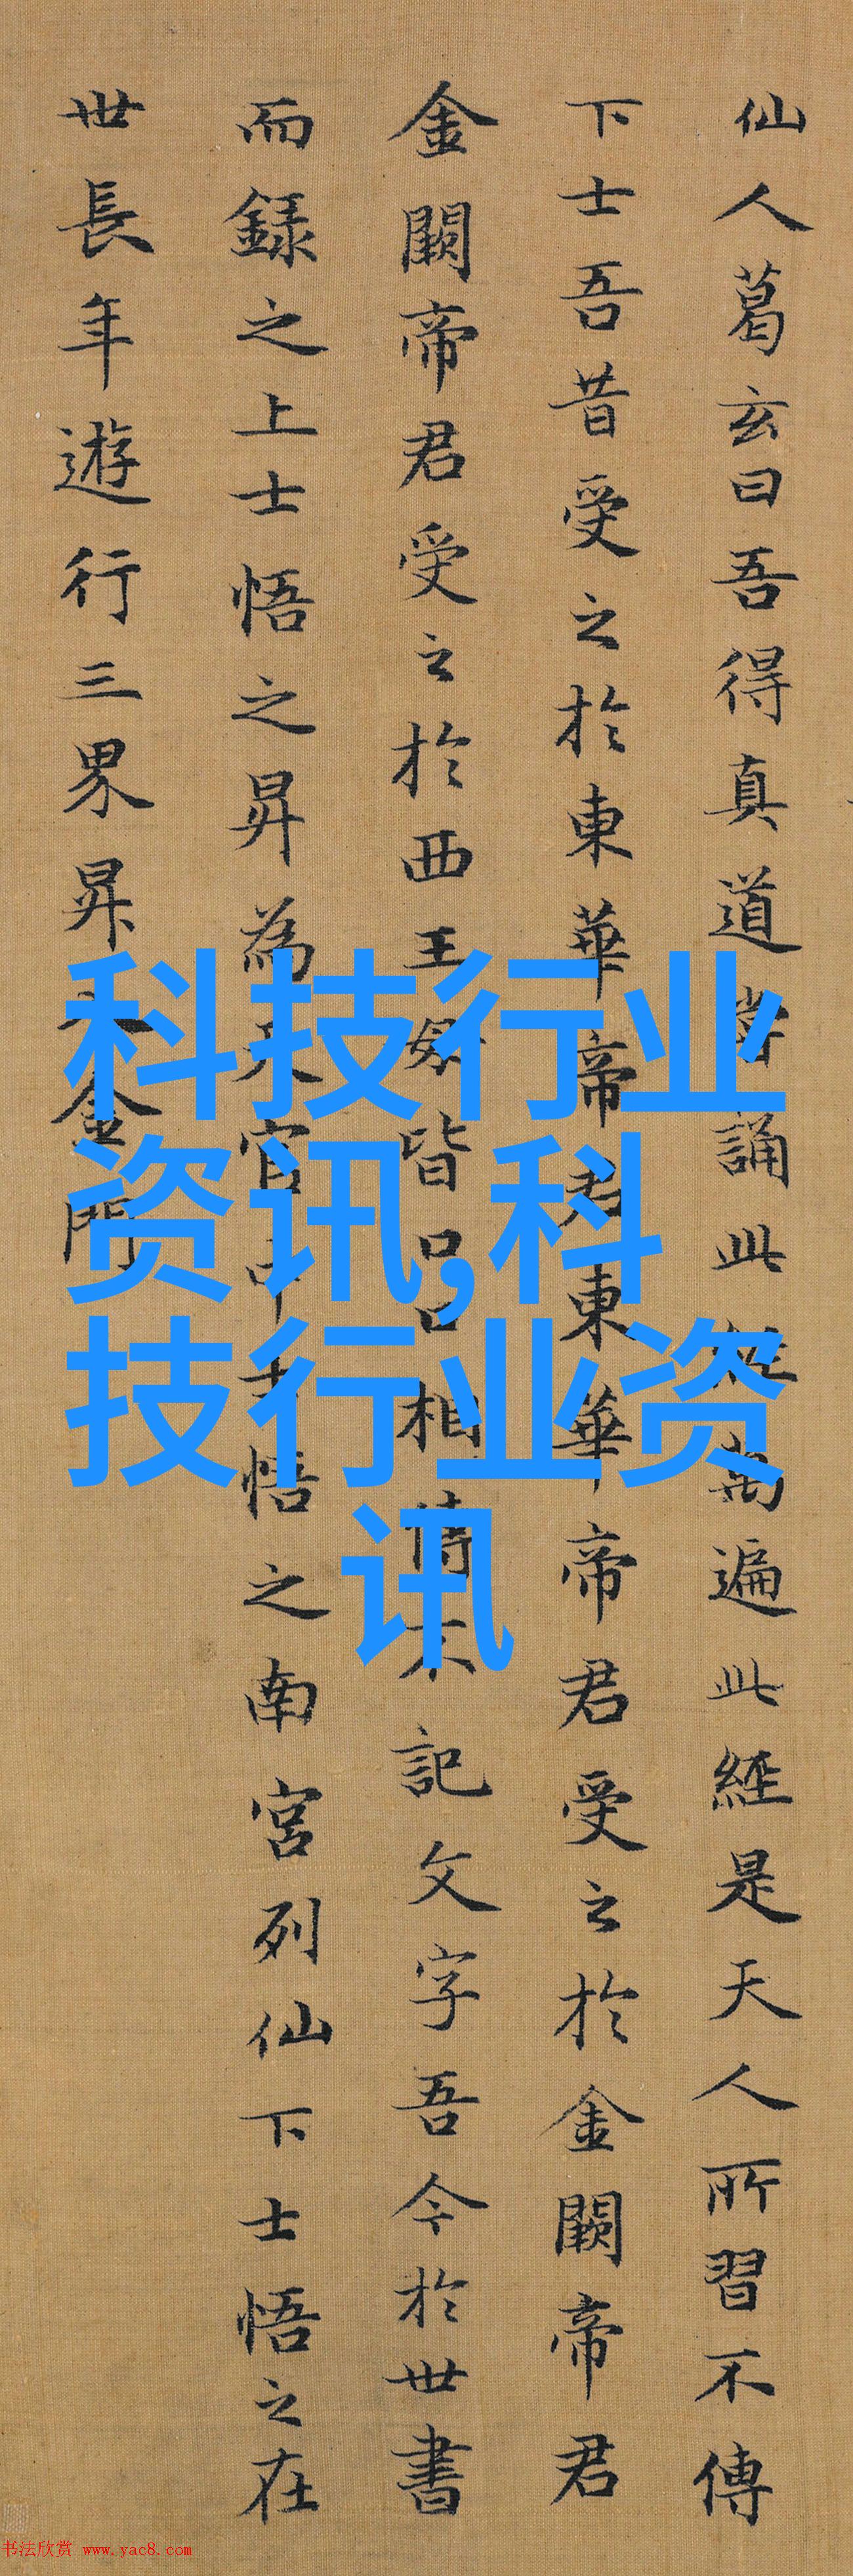 仙人葛玄曰吾得真道誦此經萬遍此經是天人所習不傳
下士吾昔受之於東華帝君東華帝君受之於金闕帝君
金闕帝君受之於西王母皆口口相傳不記文字吾今於世書
而録之上士悟之昇為天官中士悟之南宮列仙下士悟之在
世長年遊行三界昇入金門
科技行业
资讯,科
技行业资
讯
书法欣赏 www.yac8.com